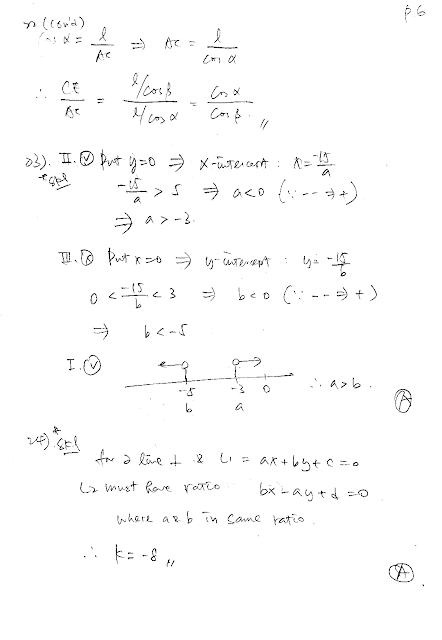 p 6
(cont'd)
cos α = l/AC ⇒ AC = l/cos α
∴ CE/AC = (l/cos β)/(l/cos α) = cos α/cos β //
23). II. ✓ Put y=0 ⇒ x-intercept : x = -15/a
-15/a > 5 ⇒ a<0 (∵ -- ⇒ +)
⇒ a > -3.
III. Put x=0 ⇒ y-intercept : y = -15/b
0 < -15/b < 3 ⇒ b<0 (∵ -- ⇒ +)
⇒ b < -5
I. ✓
-5 -3 0 ∴ a>b.
b a
A
24)*
for 2 line ⊥ & L1 = ax+by+c=0
L2 must have ratio bx-ay+d=0
where a&b in same ratio.
∴ k = -8 //
A